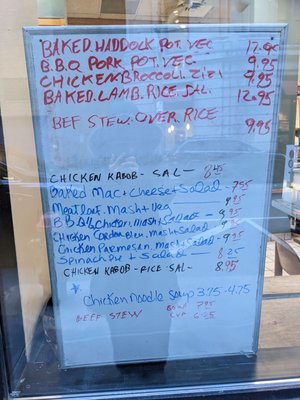 BAKED HADDOCK POT. VEC 17.90
B.B.Q PORK POT. VEC 9.95
CHICKEN BROCCOLI. ZITI 9.95
BAKED. LAMB. RICE SAL. 12.95
BEF STEW. OVER. RICE 9.95
CHICKEN KABOB - SAL - 8.45
Baked Mac + Cheese + Salad - 7.95
Meat loaf. Mash + Veg 9.95
Mash + Salad - 9.95
Chicken Cordon Bleu, Mash + Salad - 9.95
Chicken Parmesan, mash + Salad - 9.25
Spinach Pie + Salad - 8.25
CHICKEN KABOB - RICE SAL - 8.95
* Chicken Noodle Soup 3.75 - 4.75
BEEF STEW BOWL 7.95
CUP 6.25